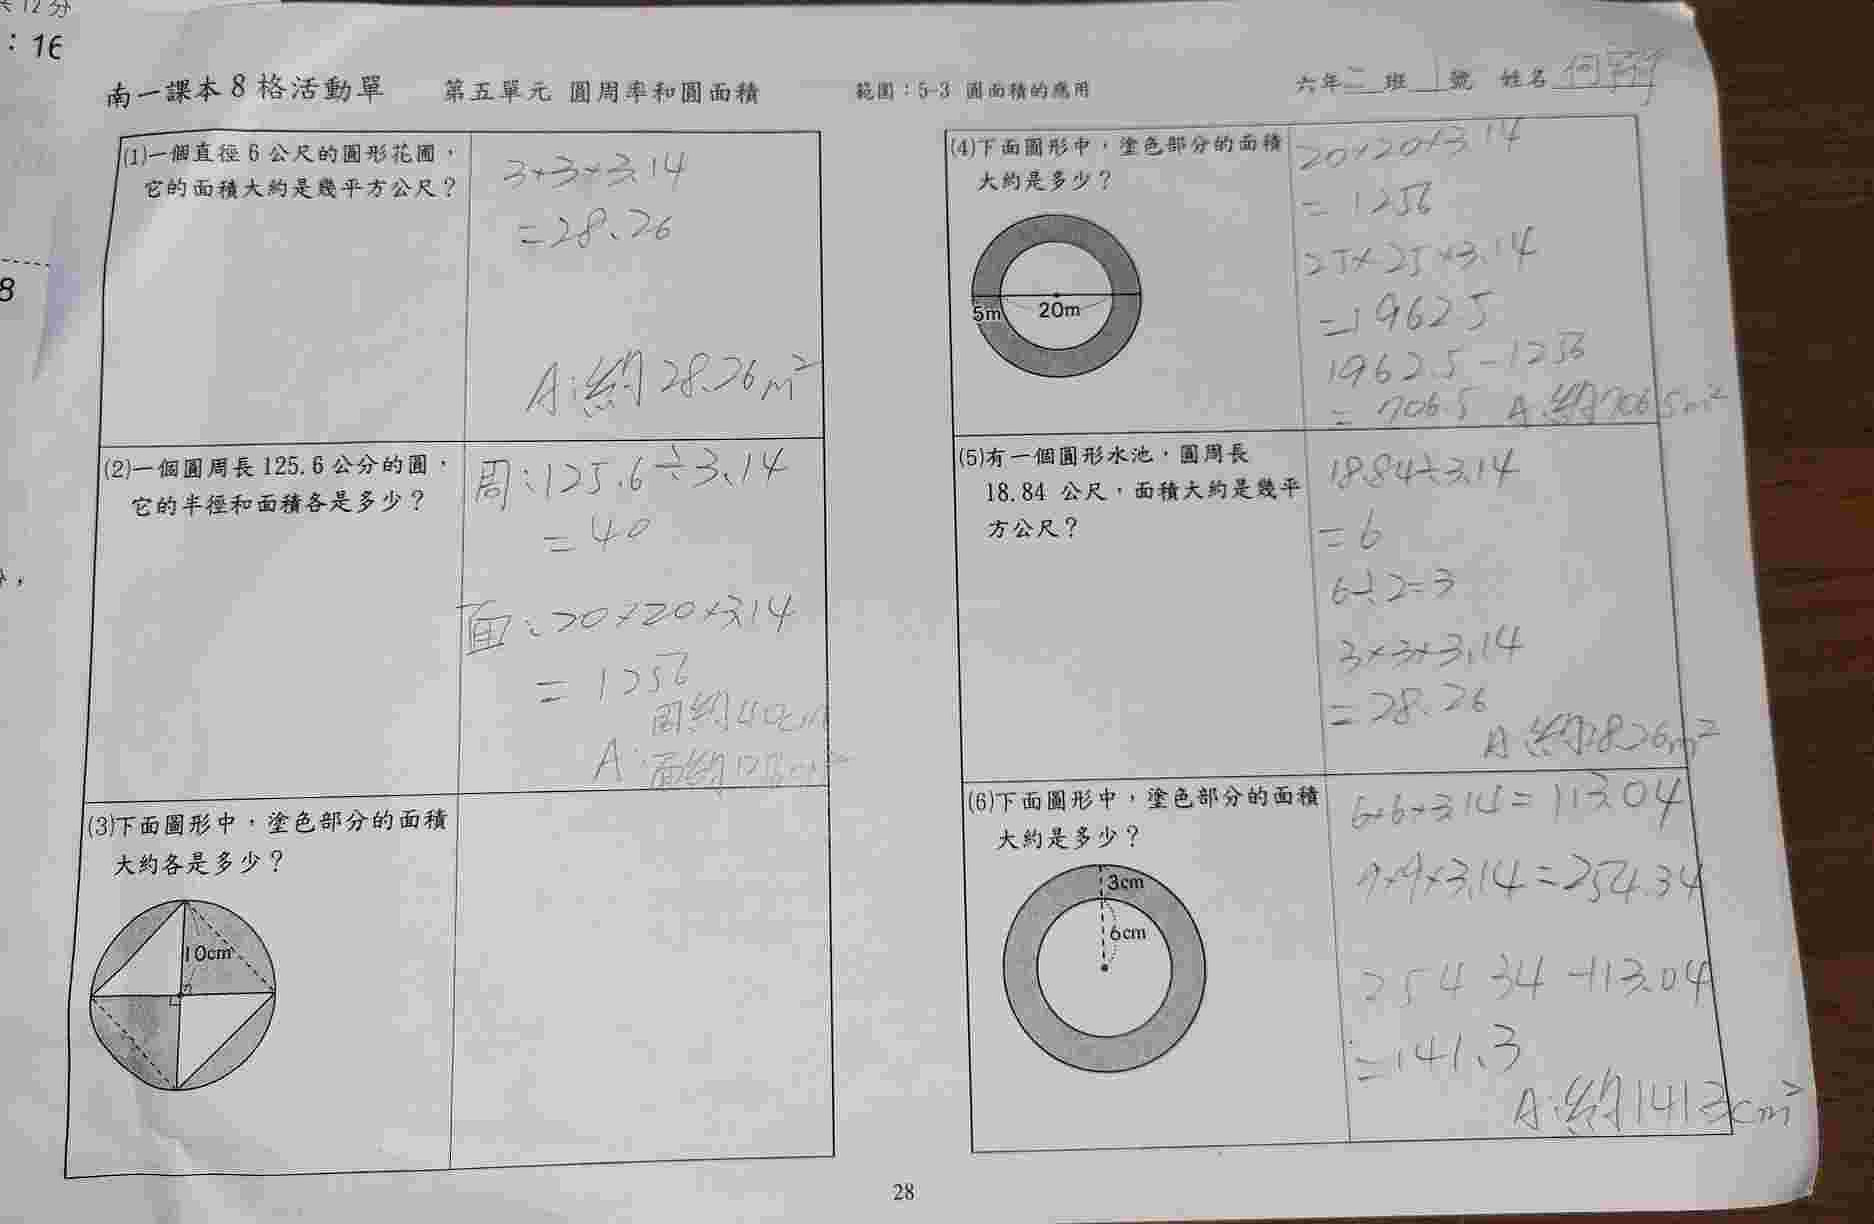 共12分
：16
8
南一課本8格活動單　第五單元 圓周率和圓面積　範圍：5-3 圓面積的應用　六年二班1號 姓名何
(1)一個直徑6公尺的圓形花圃，
它的面積大約是幾平方公尺？
3×3×3.14
=28.26
A:約28.26m²
(2)一個圓周長125.6公分的圓，
它的半徑和面積各是多少？
周:125.6÷3.14
=40
面:20×20×3.14
=1256
周約40cm
A:面約1256cm²
(3)下面圖形中，塗色部分的面積
大約各是多少？
10cm
(4)下面圖形中，塗色部分的面積
大約是多少？
5m
20m
20×20×3.14
=1256
25×25×3.14
=1962.5
1962.5-1256
=706.5 A:約706.5m²
(5)有一個圓形水池，圓周長
18.84 公尺，面積大約是幾平
方公尺？
18.84÷3.14
=6
6÷2=3
3×3×3.14
=28.26
A:約28.26m²
(6)下面圖形中，塗色部分的面積
大約是多少？
3cm
6cm
6×6×3.14=113.04
9×9×3.14=254.34
254.34-113.04
=141.3
A:約141.3cm²
28